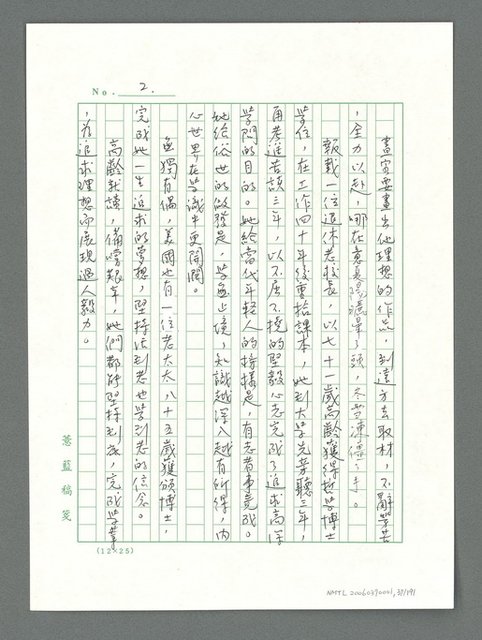 No. 2.
畫家要畫出他理想的作品,到遠方去取材,不辭勞苦
,全力以赴,哪在意夏陽曬暈了頭,冬雪凍僵了手。
報載一位退休老校長,以七十一歲高齡獲得哲學博士
學位,在工作四十年後重拾課本,她到大學先旁聽三年,
再考進苦讀三年,以不屈不撓的堅毅心志完成了追求高深
學問的目的。她給當代年輕人的榜樣是,有志者事竟成。
她給俗世的啟發是,學無止境,知識越深入越有所得,內
心世界在學識中更開闊。
無獨有偶,美國也有一位老太太八十五歲獲頒博士,
完成她一生追求的夢想,堅持活到老也學到老的信念。
高齡就讀,備嚐艱辛,她們都能堅持到底,完成學業
,為追求理想而展現過人毅力。
蒼藍稿箋
(12×25)
NMTL 20060390041, 39/191